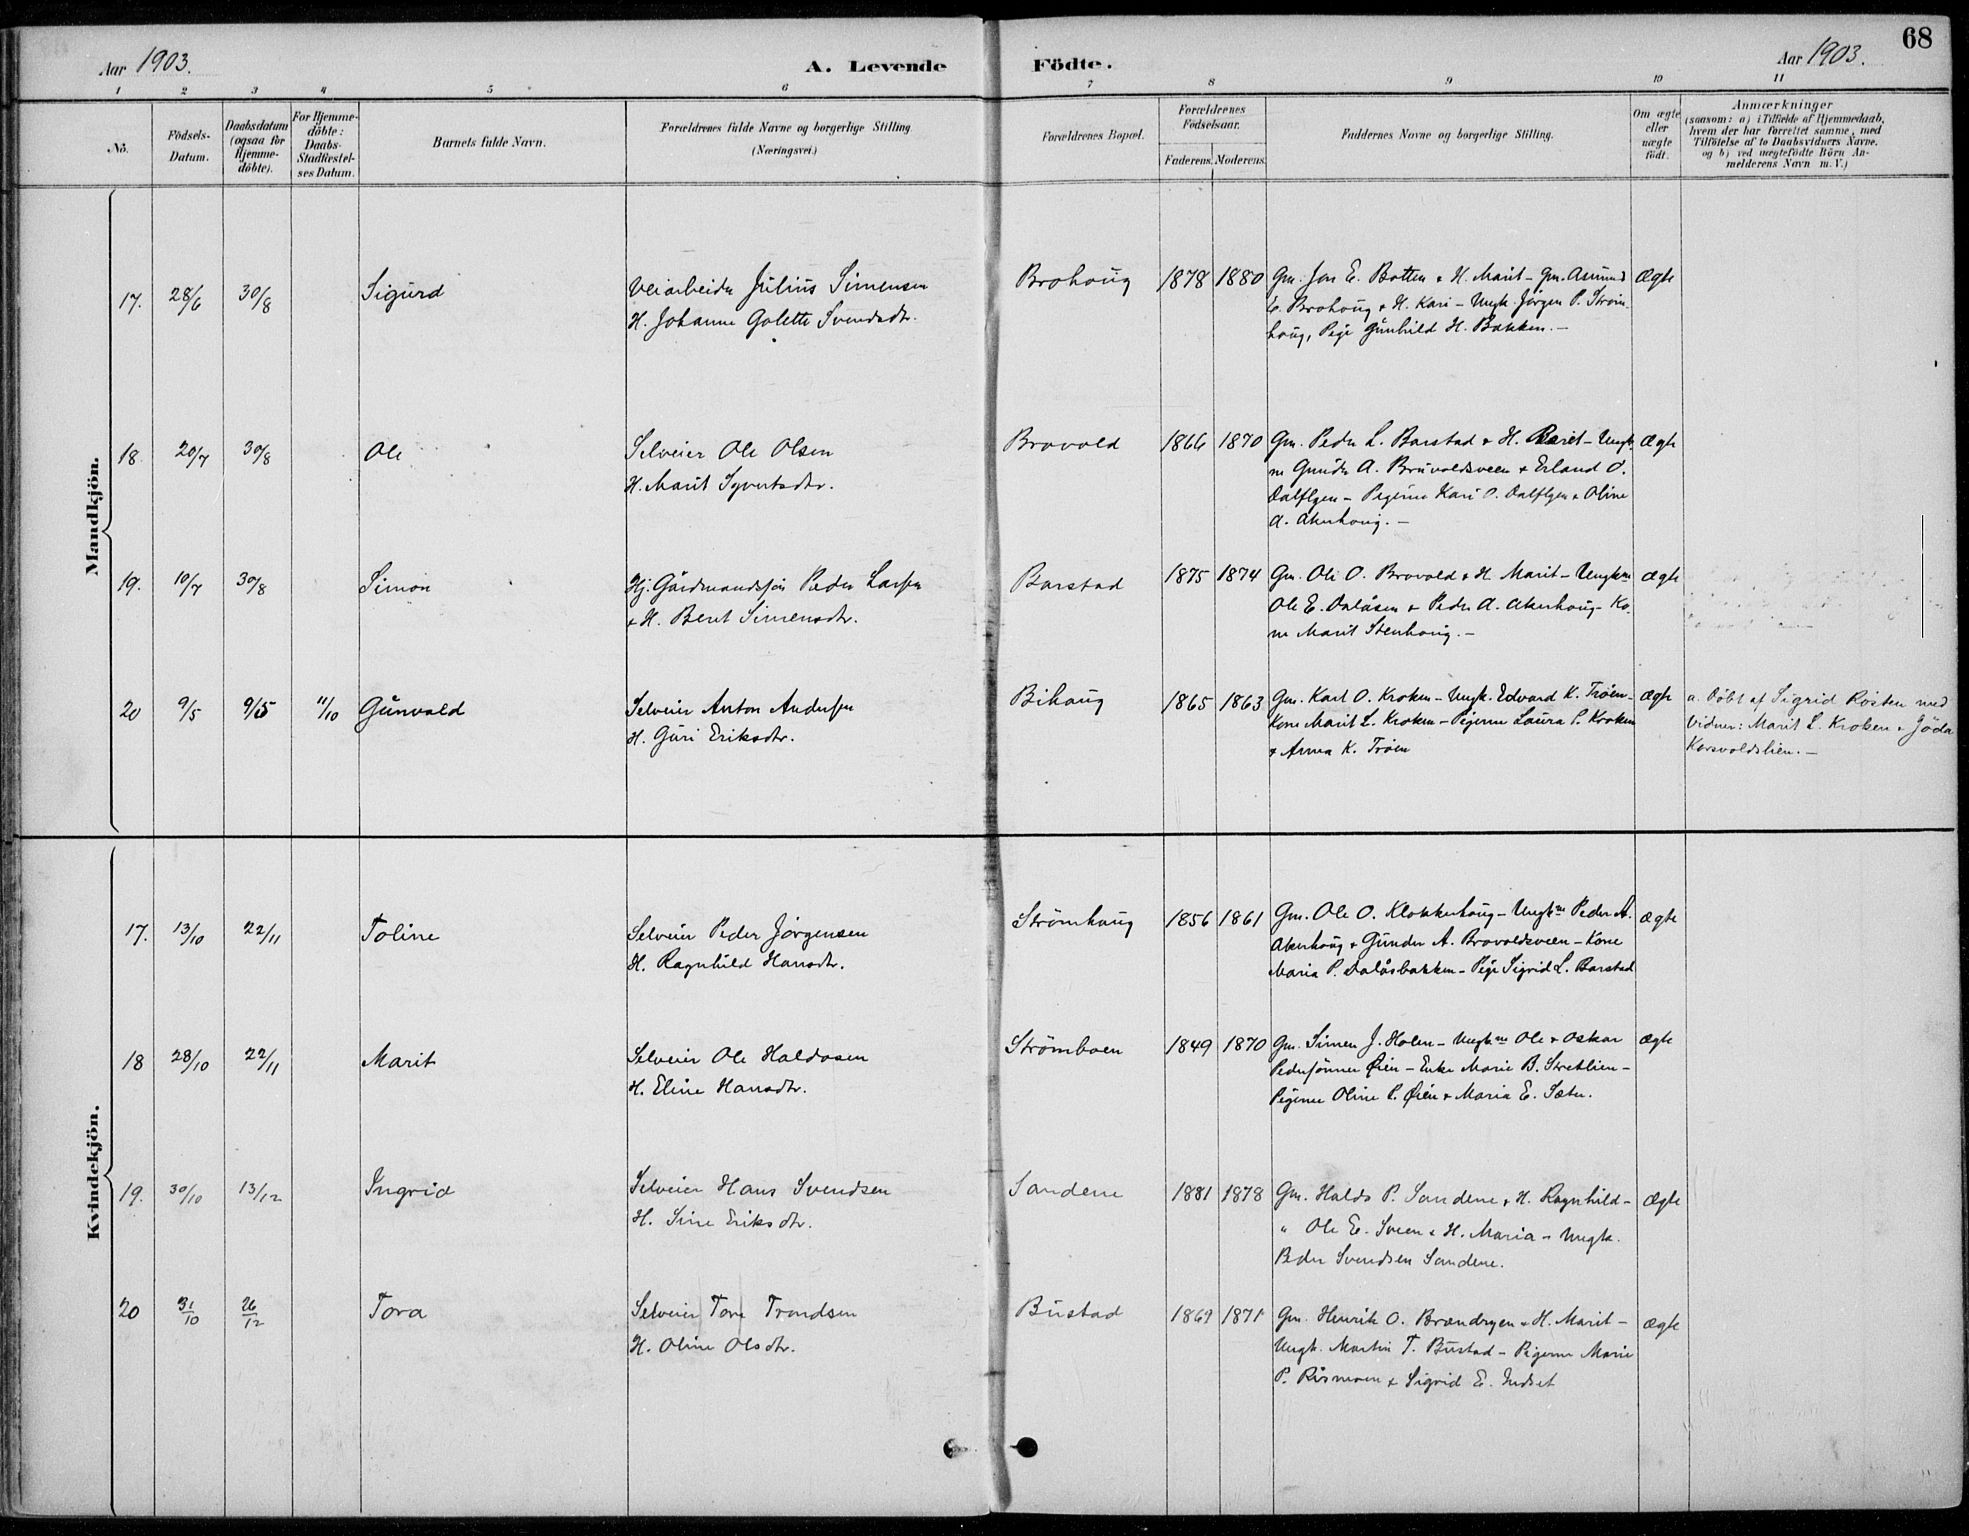 68
Aar 1903.
A. Levende Födte.
Aar 1903.
1 2 3 4 5 6 7 8 9 10 11
No.
Födsels-
Datum.
Daabsdatum
(ogsaa for
Hjemme-
döbte).
For Hjemme-
döbte:
Daabs-
Stadfæstel-
ses Datum.
Barnets fulde Navn.
Forældrenes fulde Navne og borgerlige Stilling
(Næringsvei.)
Forældrenes Bopæl.
Forældrenes
Födselsaar.
Faderens. Moderens.
Faddernes Navne og borgerlige Stilling.
Om ægte
eller
uægte
födt.
Anmærkninger
(saasom: a) i Tilfælde af Hjemmedaab,
hvem der har forrettet samme, med
Tilföielse af to Daabsvidners Navne,
og b) ved uægtefödte Börn An-
melderens Navn m. V.)
Mandkjön.
17. 28/6 30/8 Sigurd
Veiarbeider Julius Simensen
H. Johanne Golette Svendsdtr.
Brohoug 1878 1880
Gm. Jon E. Botten & H. Marit - Gm. Amund
E. Brohoug & H. Kari - Ungk. Jörgen P. Ström-
houg, Pige Gunhild H. Bakken. -
Ægte
18. 20/7 30/8 Ole
Selveier Ole Olsen
H. Marit Syvertsdtr.
Brovold 1866 1870
Gm. Peder L. Barstad & H. Beret - Ungk.
ne Gunder A. Bruvoldsveen & Erland O.
Dalflyen - Pigerne Kari O. Dalflyen & Oline
A. Akerhoug. -
Ægte
19. 10/7 30/8 Simon
Hj. Gårdmandssön Peder Larsen
& H. Beret Simensdtr.
Barstad 1875 1874
Gm. Ole O. Brovold & H. Marit - Ungkne
Ole E. Dalåsen & Peder A. Akerhoug - Ko-
ne Marit Stenhoug. -
ægte
20 9/5 9/5 11/10 Gunvald
Selveier Anton Andersen
H. Guri Eriksdtr.
Bihoug 1865 1863
Gm. Karl O. Kroken - Ungk. Edvard K. Tröen -
Kone Marit L. Kroken - Pigerne Laura P. Kroken
& Anna K. Tröen
ægte
a. Döbt af Sigrid Rosten med
Vidner: Marit L. Kroken & Jöda
Korsvoldslien. -
Kvindekjön.
17. 13/10 22/11 Toline
Selveier Peder Jörgensen
H. Ragnhild Hansdtr.
Strömhoug 1856 1861
Gm. Ole O. Klokkerhoug - Ungkne Peder A.
Akerhoug & Gunder A. Brovoldsveen - Kone
Maria P. Dalåsbakken - Pige Sigrid L. Barstad
ægte
18 28/10 22/11 Marit
Selveier Ole Haldosen
H. Eline Hansdtr.
Strömboen 1849 1870
Gm. Simen J. Holen - Ungkne Ole & Oskar
Pedersönner Øien - Enke Marie B. Stretlien -
Pigerne Oline P. Øien & Maria E. Sæter.
ægte
19. 30/10 13/12 Ingrid
Selveier Hans Svendsen
H. Sine Eriksdtr.
Sandene 1881 1878
Gm. Haldo P. Sandene & H. Ragnhild -
" Ole E. Sveen & H. Maria - Ungk.
Peder Svendsen Sandene.
Ægte
20 31/10 26/12 Tora
Selveier Tore Trondsen
H. Oline Olsdtr.
Bustad 1869 1871
Gm. Henrik O. Brandryen & H. Marit -
Ungk. Martin T. Bustad - Pigerne Marie
P. Rismoen & Sigrid E. Indset
ægte